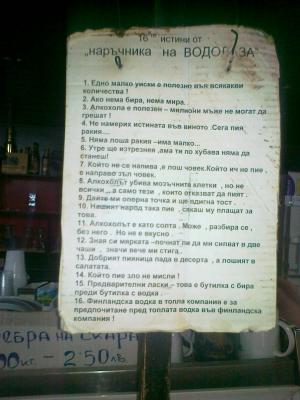 16 те истини от
„наръчника на ВОДОЛАЗА"
1. Едно малко уиски е полезно във всякакви
количества !
2. Ако нема бира, нема мира.
3. Алкохола е полезен – милиони мъже не могат да
грешат !
4. Не намерих истината във виното .Сега пия
ракия....
5. Няма лоша ракия –има малко...
6. Утре ще изтрезнея ,ама ти по хубава няма да
станеш!
7. Който не се напива ,е лош човек.Който ич не пие ,
е направо зъл човек.
8. Алкохолът убива мозъчните клетки , но не
всички ,..а само тези , които отказват да пият .
9. Дайте ми оперна точка и ще вдигна тост .
10. Нашият народ така пие , сякаш му плащат за
това.
11. Алкохолът е като солта . Може , разбира се ,
без него . Но не е вкусно .
12. Зная си мярката –почнат ли да ми сипват в две
чаши , значи вече ми стига..
13. Добрият пияница пада в десерта , а лошият в
салатата.
14. Който пие зло не мисли !
15. Предварителни ласки,– това е бутилка с бира
преди бутилка с водка .
16. Финландска водка в топла компания е за
предпочитане пред топлата водка във финландска
компания !
РЕБРА НА СКАРА
00 кг. – 2.50 лв.